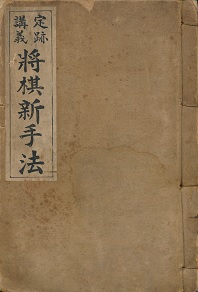 定跡
講義
将棋新手法